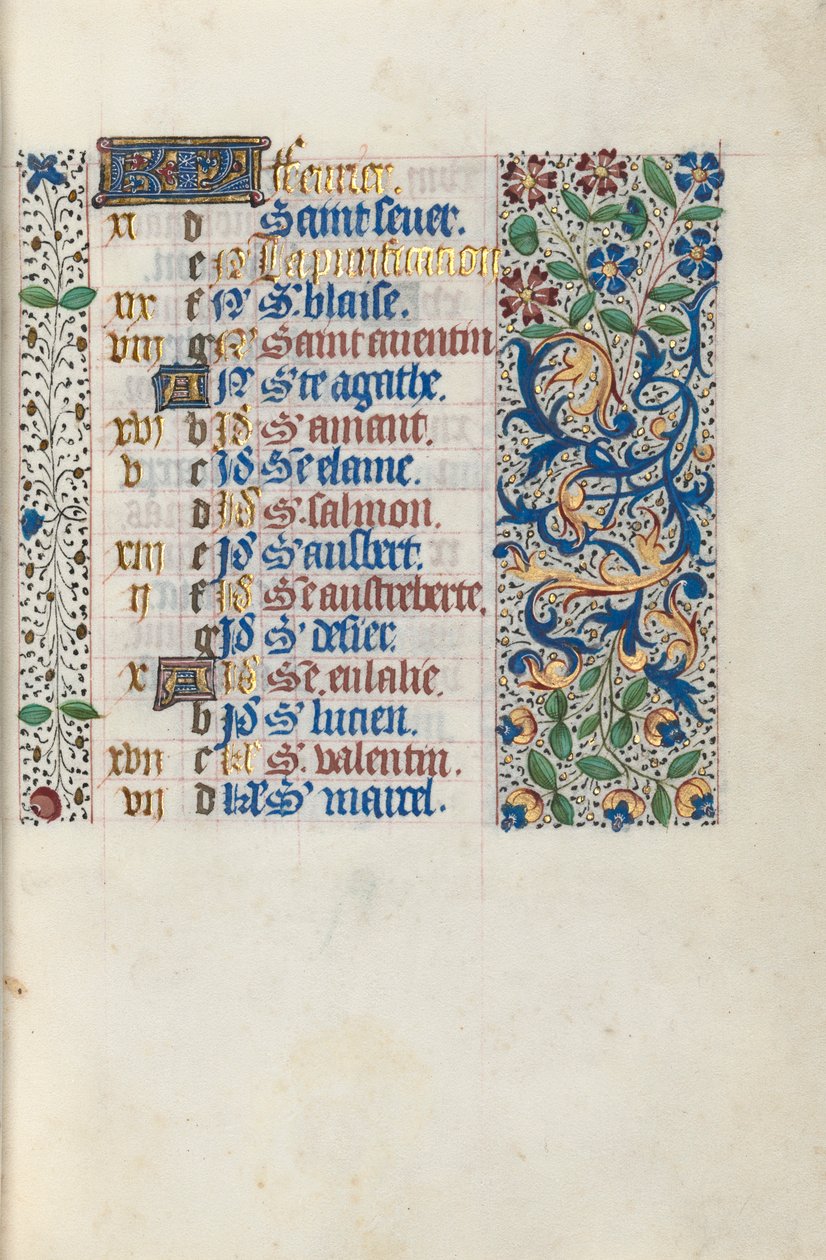 KL feurier.
xi d Saint seuer.
e N La purification
xix f N S. blaise.
viii g N Saint auentin
A N Ste agathe.
xvi b Id S' amant.
v c Id Se elaine.
d Id S. salmon.
xiii e Id S' ausbert.
ii f Id Se austreberte.
g Id S' desier.
x A Id Se. eulalie.
b Id S' lucien.
xvii c kl S. valentin.
vii d kl S' marcel.